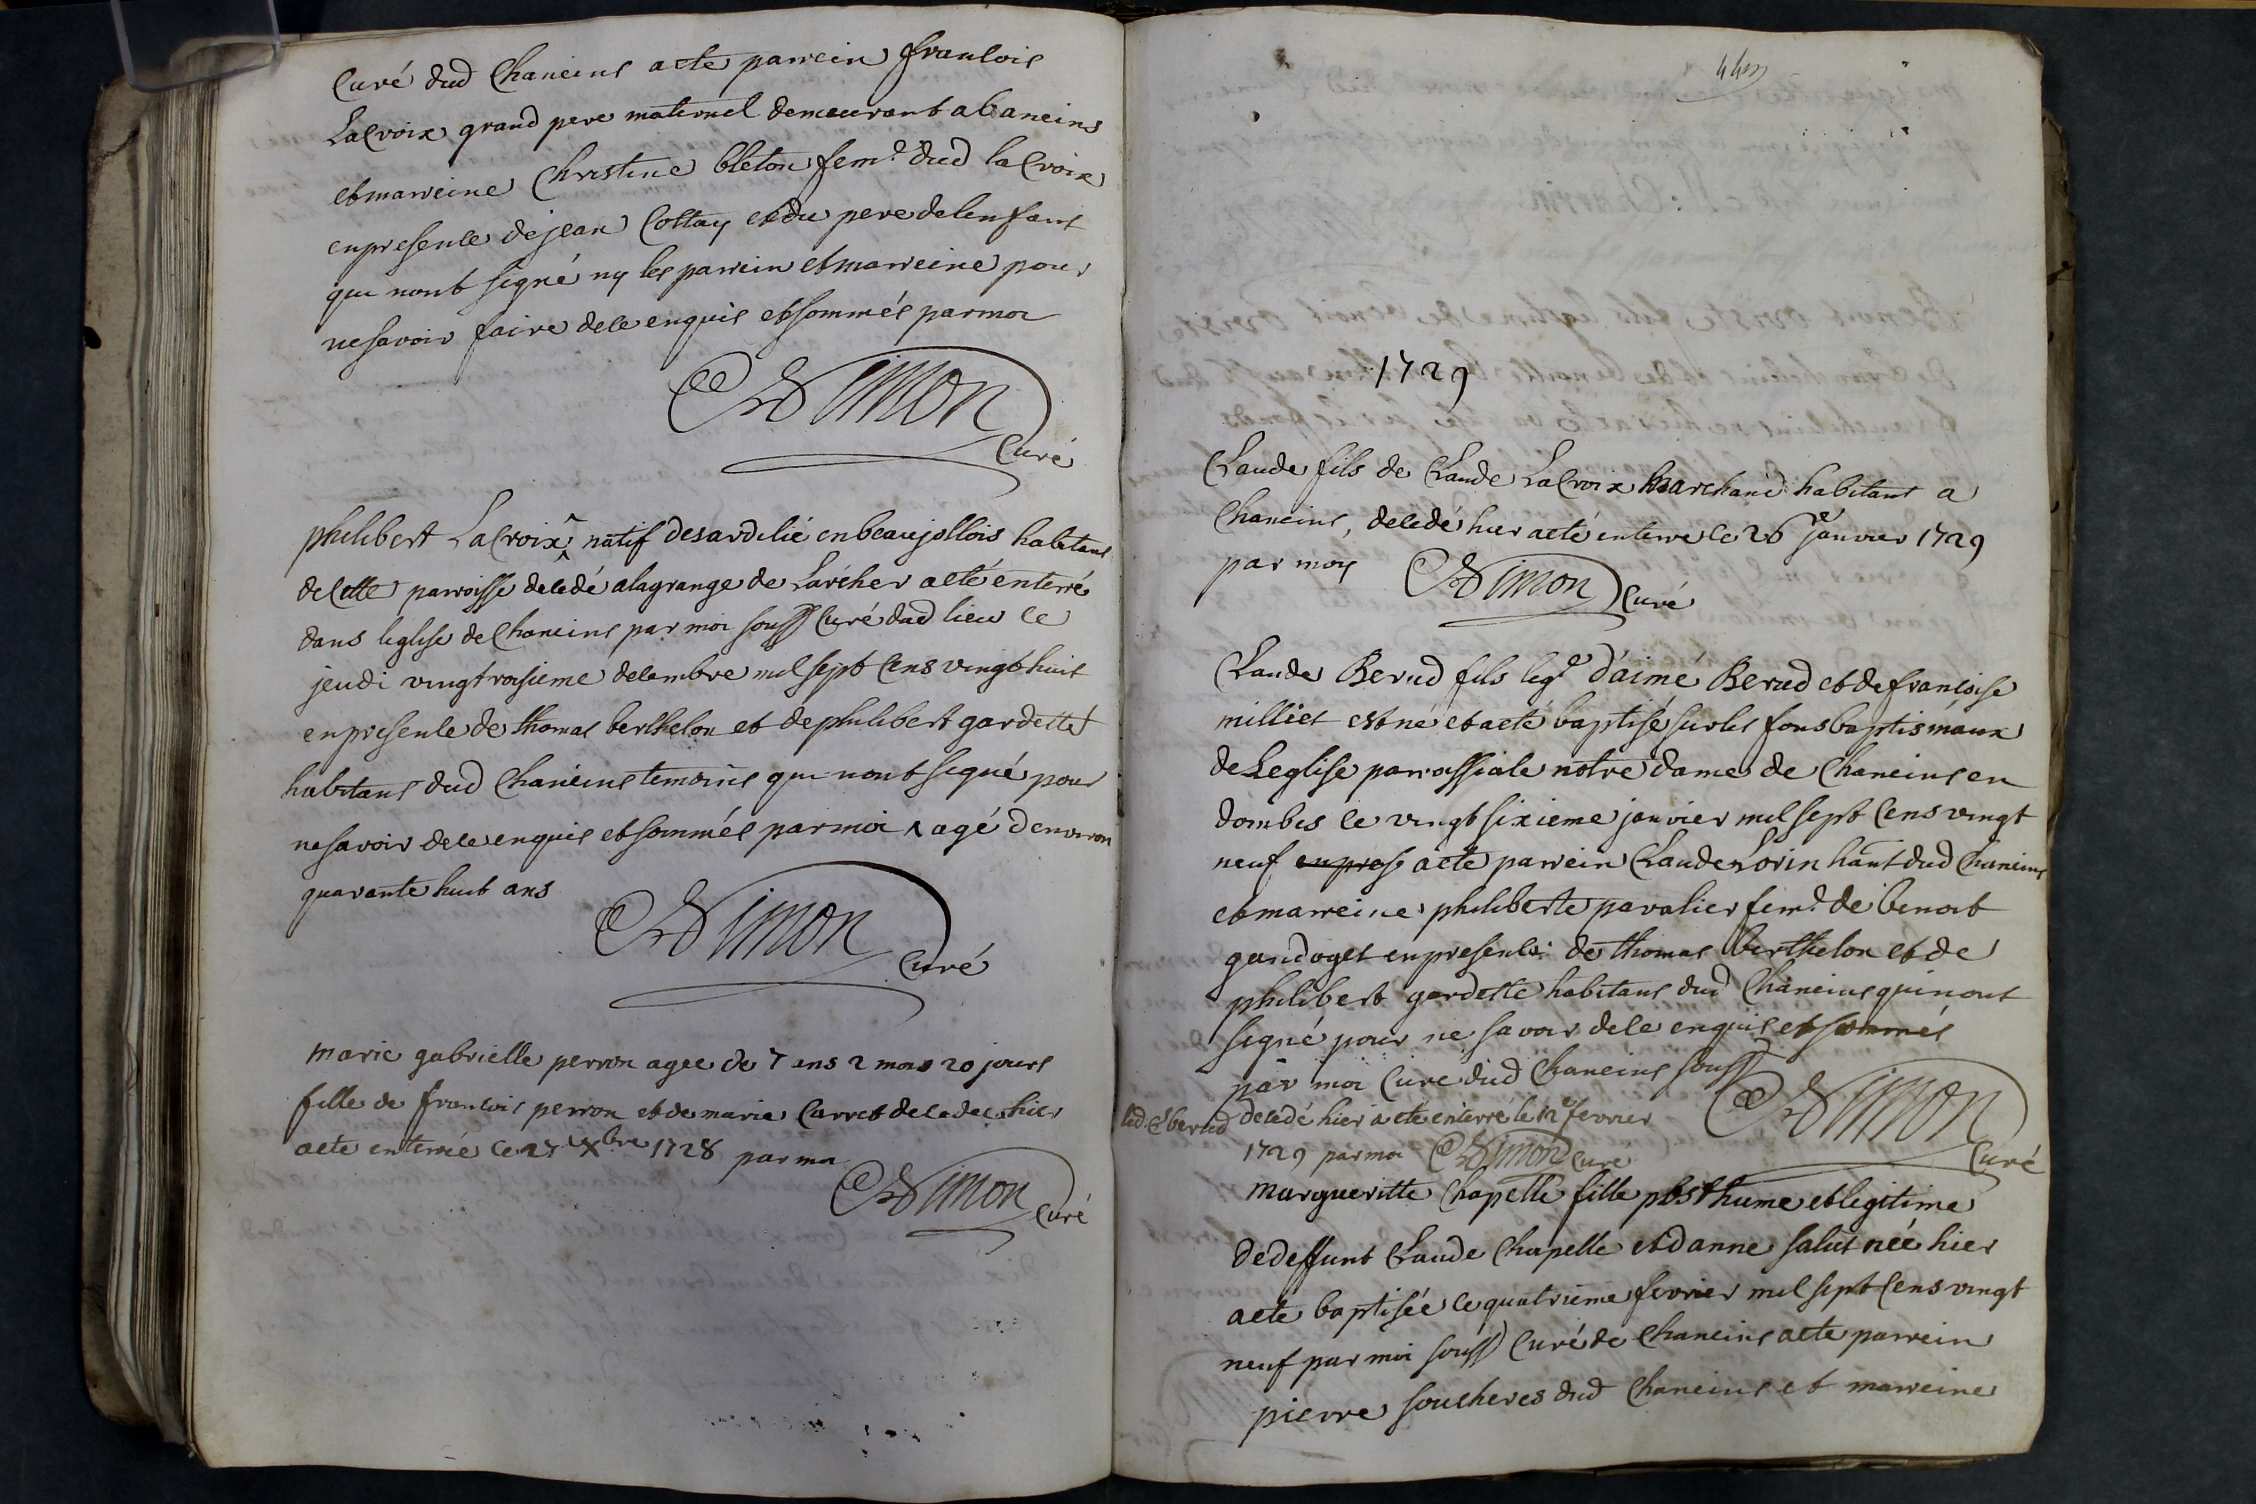 Curé dud Chaneins a été parrein francois
LaCroix grand pere maternel demeurant a baneins
et marreine Christine bleton fem.e dud la Croix
en presence de jean Cottay et du pere de lenfant
qui nont signé ny les parrein et marreine pour
ne savoir faire de ce enquis et sommés par moi
Simon
Curé
philibert LaCroix ^ natif desardilié en beaujollois habitant
de Cette parroisse decedé a lagrange de Larcher a eté enterré
dans leglise de Chaneins par moi souss Curé dud lieu ce
jeudi vingt troisieme decembre mil sept Cens vingt huit
en presence de thomas berthelon et de philibert gardette
habitans dud Chaneins temoins qui nont signé pour
ne savoir de ce enquis et sommés par moi ^ agé denviron
quarante huit ans
Simon
Curé
marie gabrielle perron agee de 7 ans 2 mois 20 jours
fille de francois perron et de marie Carret decedee hier
a ete enterrée ce 27 Xbre 1728 par moi
Simon Curé
1729
Claude fils de Claude LaCroix Marchand habitant a
Chaneins, decedé hier a eté enterre ce 26e janvier 1729
par moy Simon Curé
Claude Berud fils lege d'aimé Berud et de francoise
milliet est né et a eté baptisé sur les fons baptismaux
de Leglise parrossiale notre dame de Chaneins en
dombes ce vingt sixieme janvier mil sept Cens vingt
neuf en pres a eté parrein Claude Lorin hant dud Chaneins
et marreine philiberte pavalier fem.e de benoit
gandoget en presence de thomas berthelon et de
philibert gardette habitans dud Chaneins qui nont
signé pour ne savoir de ce enquis et sommés
par moi Curé dud Chaneins souss
Simon
Curé
led. Cl berud decedé hier a ete enterré le 12e fevrier
1729 par moi Simon Curé
Margueritte Chapelle fille posthume et legitime
de deffunt Claude Chapelle et danne salut née hier
a ete baptisée ce quatrieme fevrier mil sept Cens vingt
neuf par moi souss Curé de Chaneins a ete parrein
pierre soucheres dud Chaneins et marreine